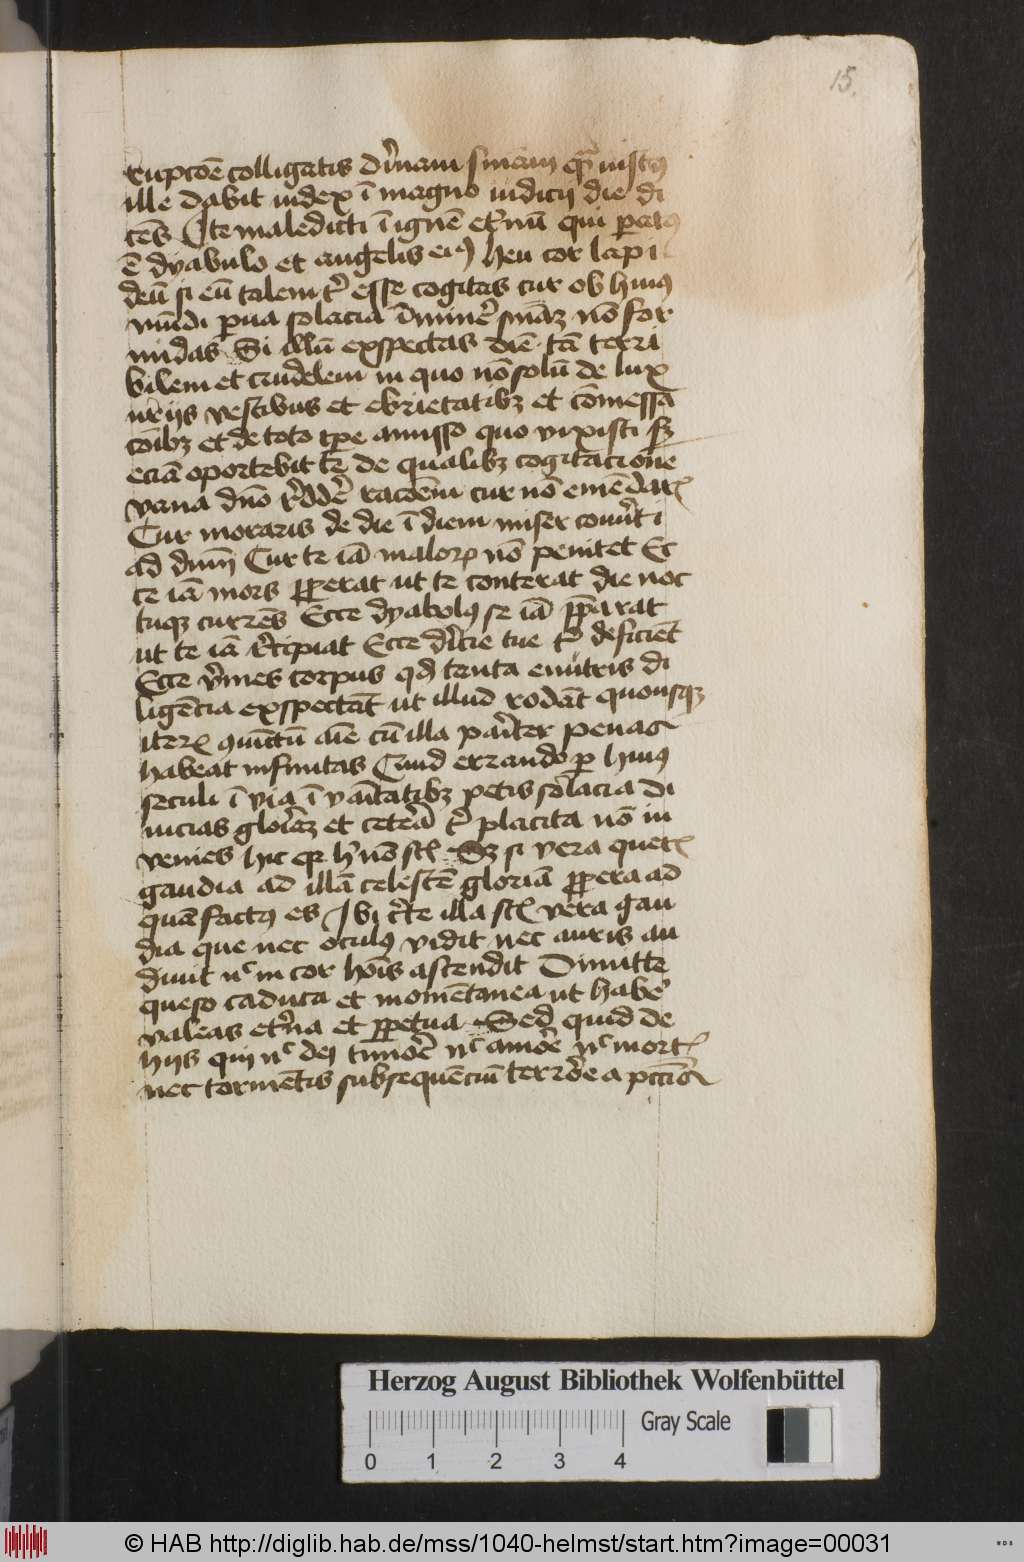 15.
rupcōe colligatis dirīam sn̄iam quā iustꝯ
ille dabit iudex ī magno iudicij die di
cēs Ite maledicti ī ignē etnū qui paratꝯ
ē dyabulo et angelis eiꝯ heu cor lapi
deū si eū talem esse cogitas cur ob huiꝯ
mūdi pua solacia sn̄iaꝫ nō for
midas Si illū exspectas diē tā terri
bilem et crudelem in quo nō solū de lux
urijs vestibus et ebrietatibꝫ et cōmessa
cōibꝫ et de toto tꝑe amisso quo vixisti sꝫ
eciā oportebit te de qualibꝫ cogitacione
vana dn̄o redde racōem cur nō emēdaris
Cur moraris de die ī diem miser conuti
ad dnm̄ Cur te iā maloꝝ nō penitet Ec
ce iā mors ꝓperat ut te conterat die noc
tuqꝫ currēs Ecce dyabolus se iā p̄parat
ut te iā recipiat Ecce diuicie tue deficient
Ecce vmes corpus qd tanta enutris di
ligēcia exspectāt ut illud rodāt quousqꝫ
iterū cū illa pariter penas
habeat infinitas Quid errando ꝑ huiꝯ
seculi ī via ī vanitatibꝫ petis solacia di
uicias gloriaꝫ et cetera placita nō in
venies hic qꝛ hic nō st̄ Sꝫ si vera queris
gaudia ad illā celestē gloriā ꝓpera ad
quā factꝯ es Ibi cte illa st̄ vera gau
dia que nec oculus vidit nec auris au
diuit nc in cor hoīs ascendit Dimitte
queso caduca et momētanea ut habe
valeas etna et ꝑpetua Sed quid de
hijs qui nc dei timore nc amore nc mortis
nec tormētis subsequēciū terrore a pcc̄is
Herzog August Bibliothek Wolfenbüttel
Gray Scale
0 1 2 3 4
© HAB http://diglib.hab.de/mss/1040-helmst/start.htm?image=00031